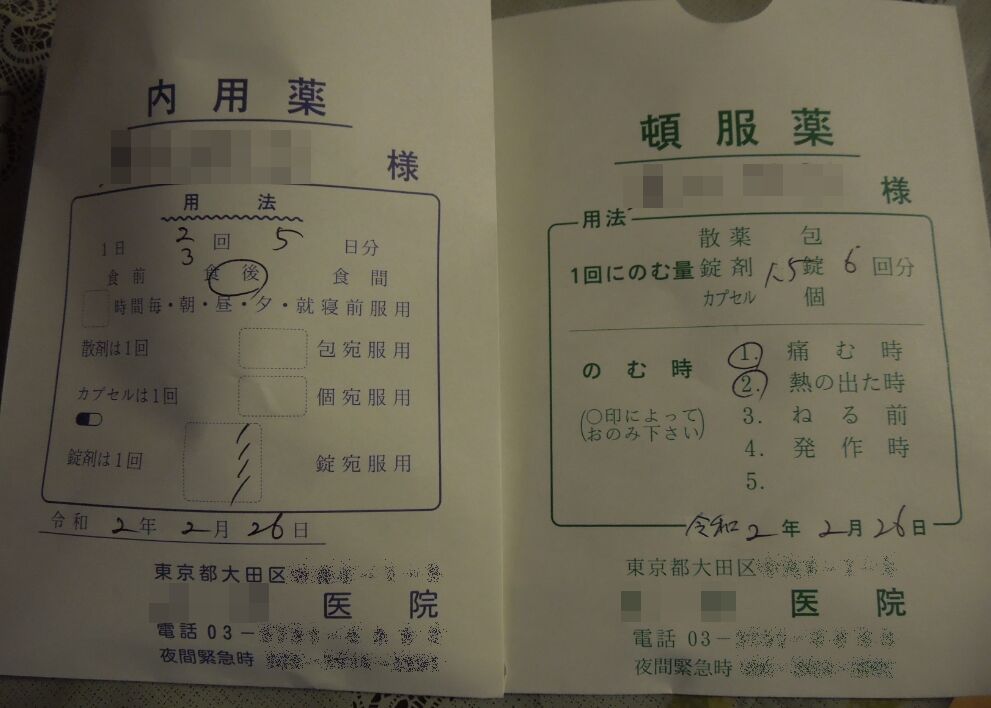 内用薬
様
用法
1日 2 回 5 日分
3
食前 食後 食間
時間毎・朝・昼・夕・就寝前服用
散剤は1回 包宛服用
カプセルは1回 個宛服用
錠剤は1回 錠宛服用
令和 2年 2月 26日
東京都大田区
医院
電話 03-
夜間緊急時
頓服薬
様
用法
散薬 包
1回にのむ量 錠剤 錠 6 回分
カプセル 個
のむ時
(○印によっておのみ下さい)
1. 痛む時
2. 熱の出た時
3. ねる前
4. 発作時
5.
令和2年 2月26日
東京都大田区
医院
電話 03-
夜間緊急時